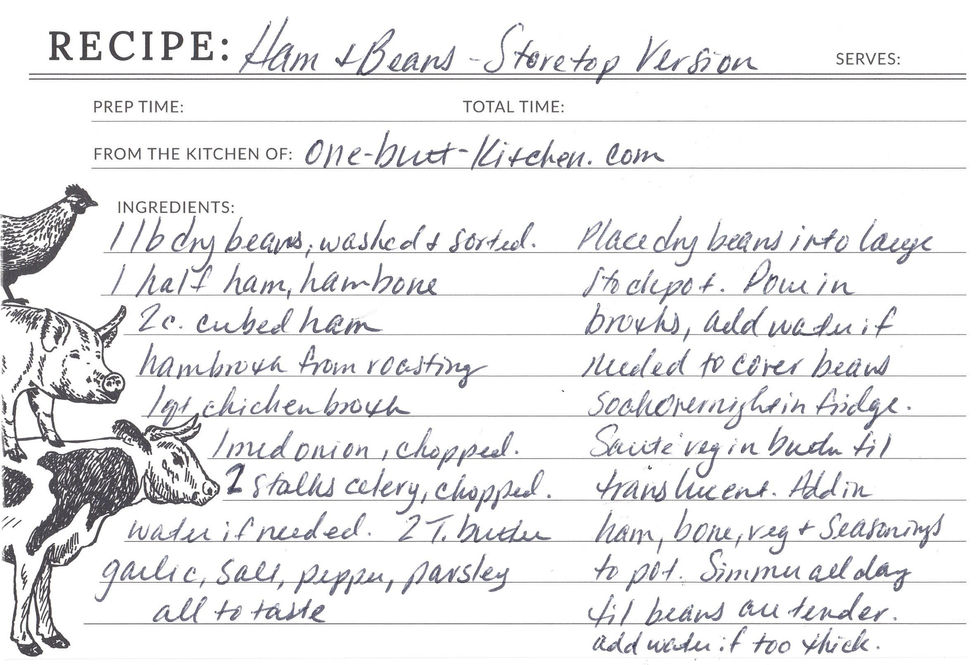 RECIPE: Ham + Beans - Stovetop Version
SERVES:
PREP TIME:
TOTAL TIME:
FROM THE KITCHEN OF: One-butt-Kitchen.com
INGREDIENTS:
1 lb dry beans, washed + sorted.
1 half ham, hambone
2 c. cubed ham
ham broth from roasting
1 qt. chicken broth
1 med onion, chopped.
2 stalks celery, chopped.
water if needed. 2 T. butter
garlic, salt, pepper, parsley
all to taste
Place dry beans into large
stockpot. Pour in
broths, add water if
needed to cover beans
soak overnight in fridge.
Sauté veg in butter til
translucent. Add in
ham, bone, veg + seasonings
to pot. Simmer all day
til beans are tender.
add water if too thick.